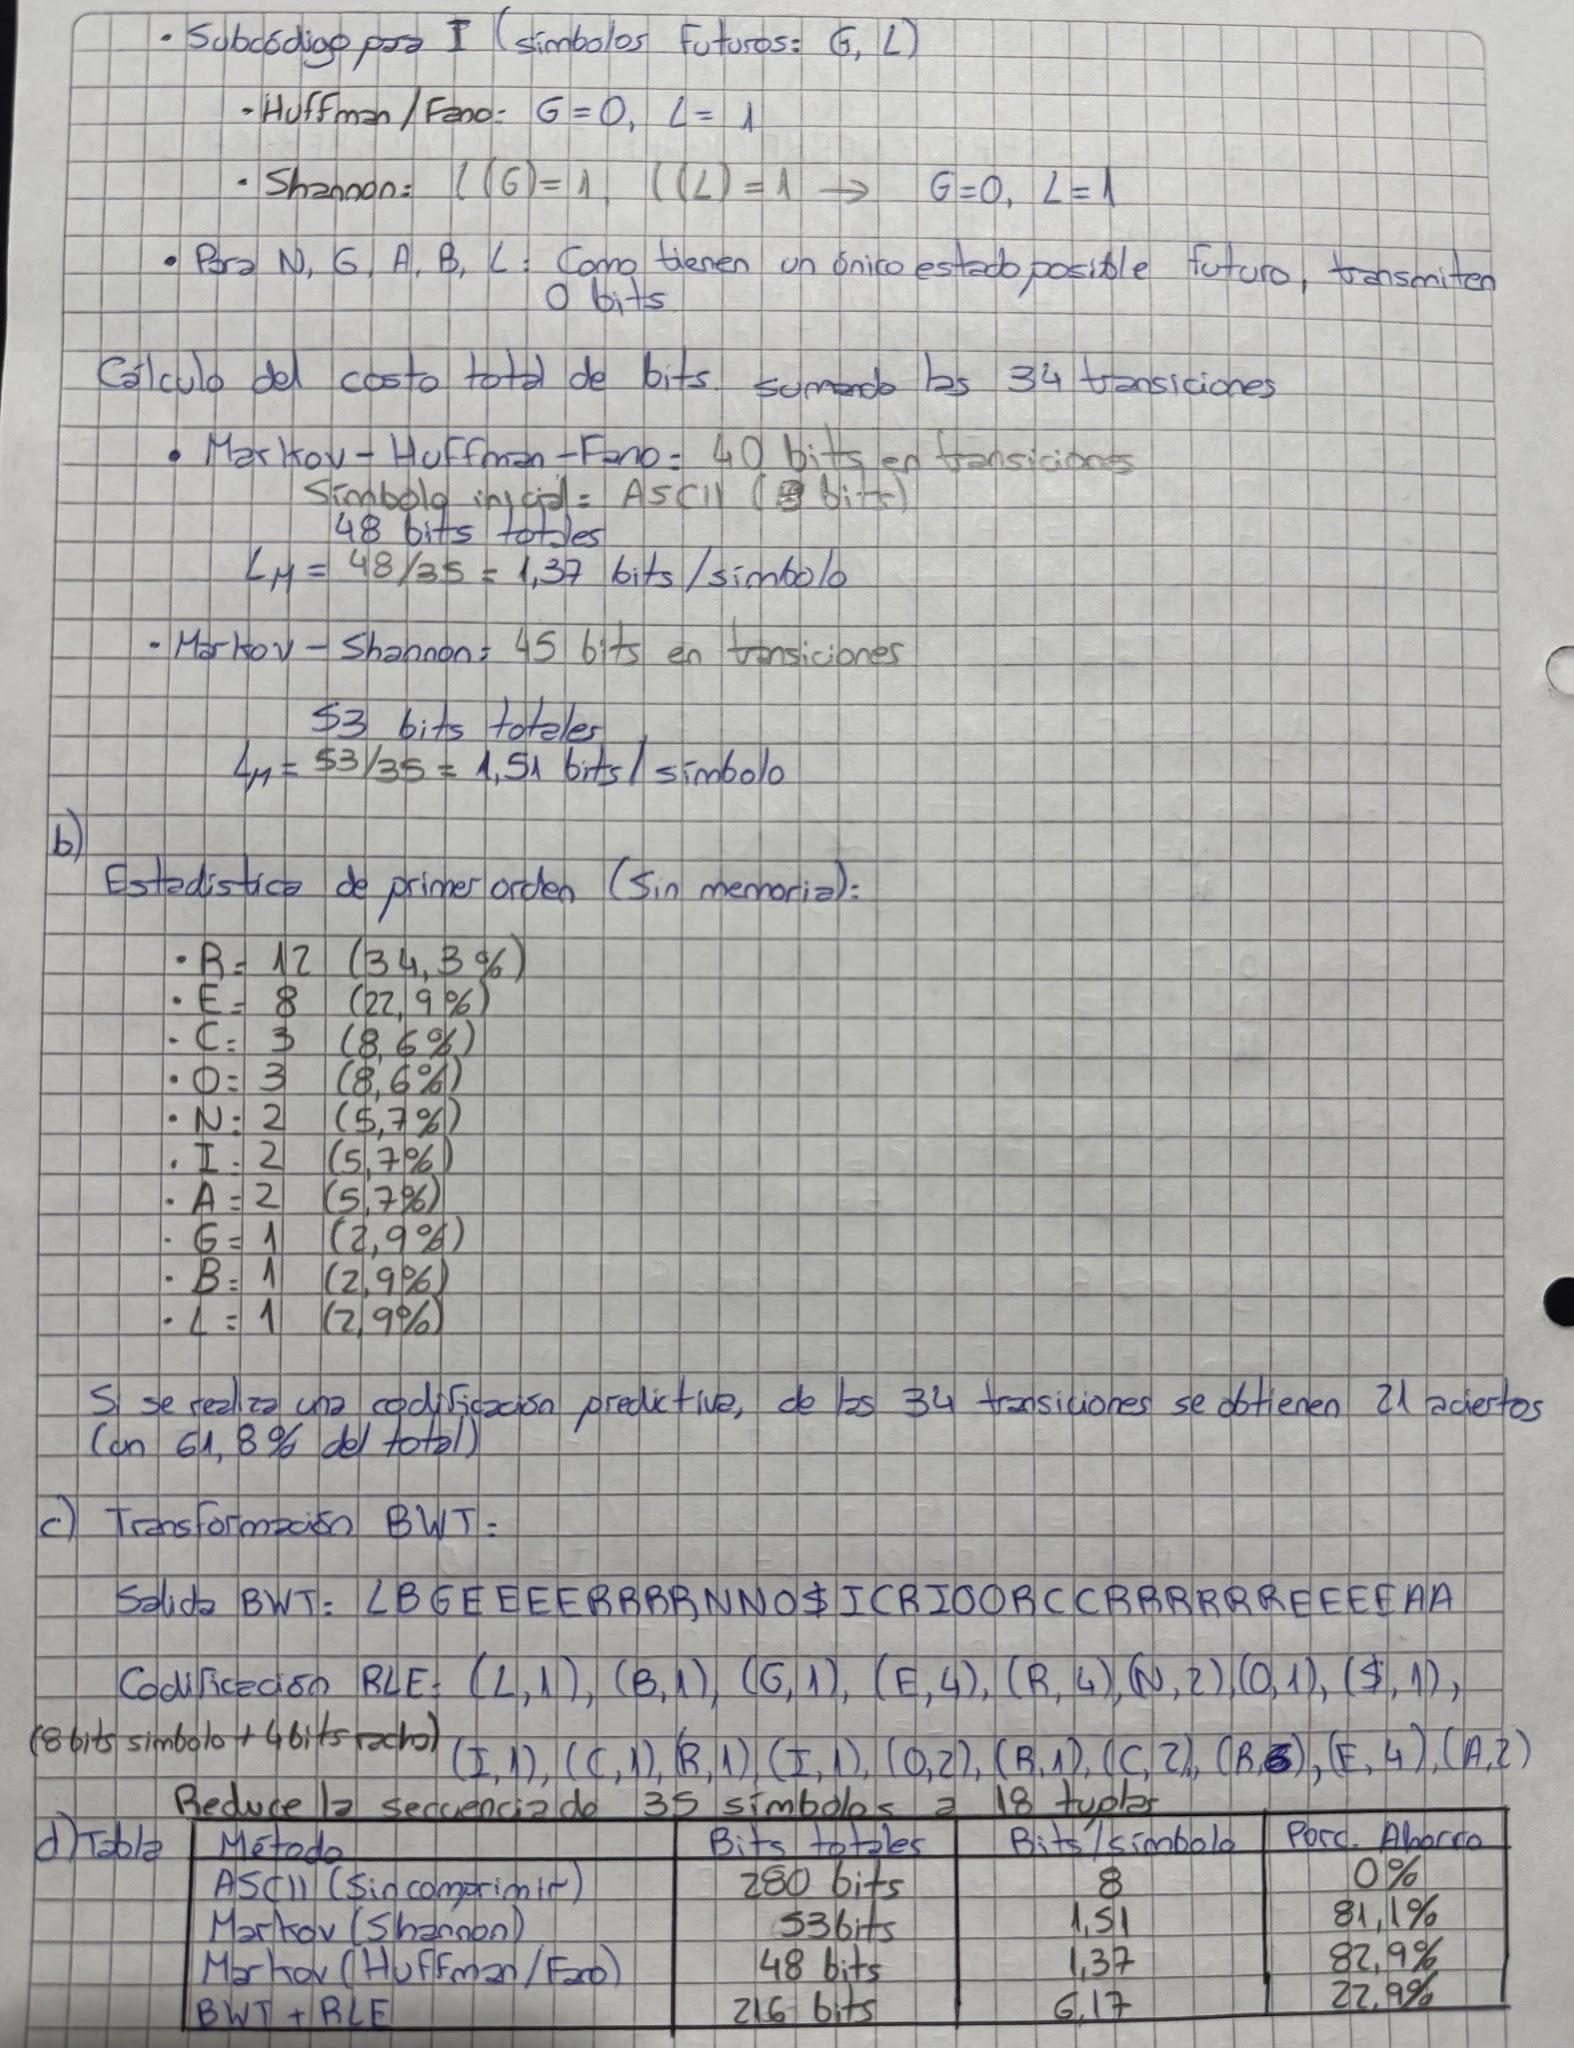 • Subcódigo para I (símbolos futuros: G, L)
• Huffman/Fano: G=0, L=1
• Shannon: l(G)=1, l(L)=1 → G=0, L=1
• Para N, G, A, B, L: Como tienen un único estado posible futuro, transmiten
0 bits
Cálculo del costo total de bits sumando las 34 transiciones
• Markov-Huffman-Fano= 40 bits en transiciones
Símbolo inicial= ASCII (8 bits)
48 bits totales
LM = 48/35 = 1,37 bits/símbolo
• Markov-Shannon: 45 bits en transiciones
53 bits totales
LM = 53/35 = 1,51 bits/símbolo
b)
Estadística de primer orden (Sin memoria):
• R= 12 (34,3%)
• E= 8 (22,9%)
• C= 3 (8,6%)
• O= 3 (8,6%)
• N= 2 (5,7%)
• I= 2 (5,7%)
• A= 2 (5,7%)
• G= 1 (2,9%)
• B= 1 (2,9%)
• L= 1 (2,9%)
Si se realiza una codificación predictiva, de las 34 transiciones se obtienen 21 aciertos
(un 61,8% del total)
c) Transformación BWT:
Salida BWT: LBGEEEERRRRNNO$ICRIOORCCRRRRRREEEEAA
Codificación RLE: (L,1), (B,1), (G,1), (E,4), (R,4), (N,2), (O,1), ($,1),
(8 bits símbolo + 4 bits racha) (I,1), (C,1), (R,1), (I,1), (O,2), (R,1), (C,2), (R,6), (E,4), (A,2)
Reduce la secuencia de 35 símbolos a 18 tuplas
d) Tabla Método Bits totales Bits/símbolo Porc. Ahorro
ASCII (Sin comprimir) 280 bits 8 0%
Markov (Shannon) 53 bits 1,51 81,1%
Markov (Huffman/Fano) 48 bits 1,37 82,9%
BWT + RLE 216 bits 6,17 22,9%